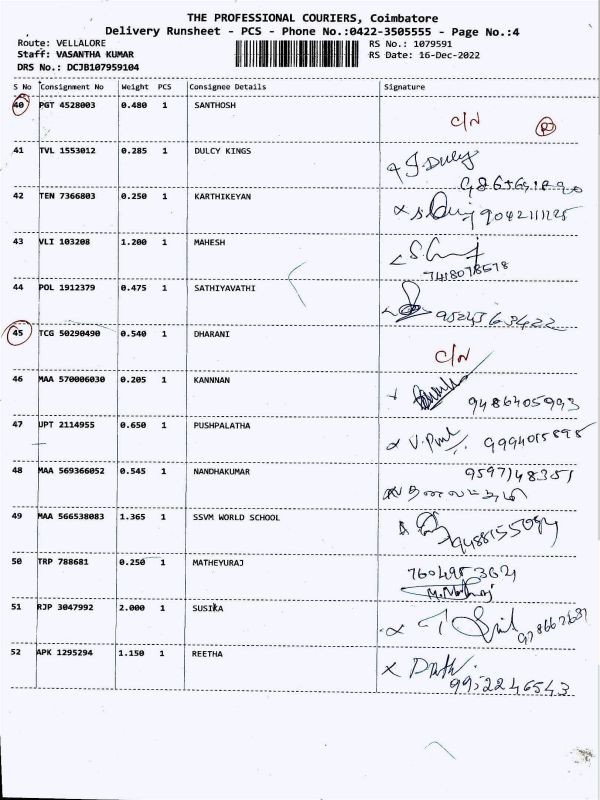 THE PROFESSIONAL COURIERS, Coimbatore
Delivery Runsheet - PCS - Phone No.:0422-3505555 - Page No.:4
Route: VELLALORE RS No.: 1079591
Staff: VASANTHA KUMAR RS Date: 16-Dec-2022
DRS No.: DCJB107959104
S No Consignment No Weight PCS Consignee Details Signature
40 PGT 4528003 0.480 1 SANTHOSH
C/N R
41 TVL 1553012 0.285 1 DULCY KINGS
J. Dulcy
42 TEN 7366803 0.250 1 KARTHIKEYAN
9042111125
43 VLI 103208 1.200 1 MAHESH
7418078578
44 POL 1912379 0.475 1 SATHIYAVATHI
45 TCG 50290490 0.540 1 DHARANI
C/N
46 MAA 570006030 0.205 1 KANNNAN
9486405993
47 UPT 2114955 0.650 1 PUSHPALATHA
9994015895
48 MAA 569366052 0.545 1 NANDHAKUMAR
9597148351
49 MAA 566538083 1.365 1 SSVM WORLD SCHOOL
9488155094
50 TRP 788681 0.250 1 MATHEYURAJ
51 RJP 3047992 2.000 1 SUSIKA
52 APK 1295294 1.150 1 REETHA
9952246543